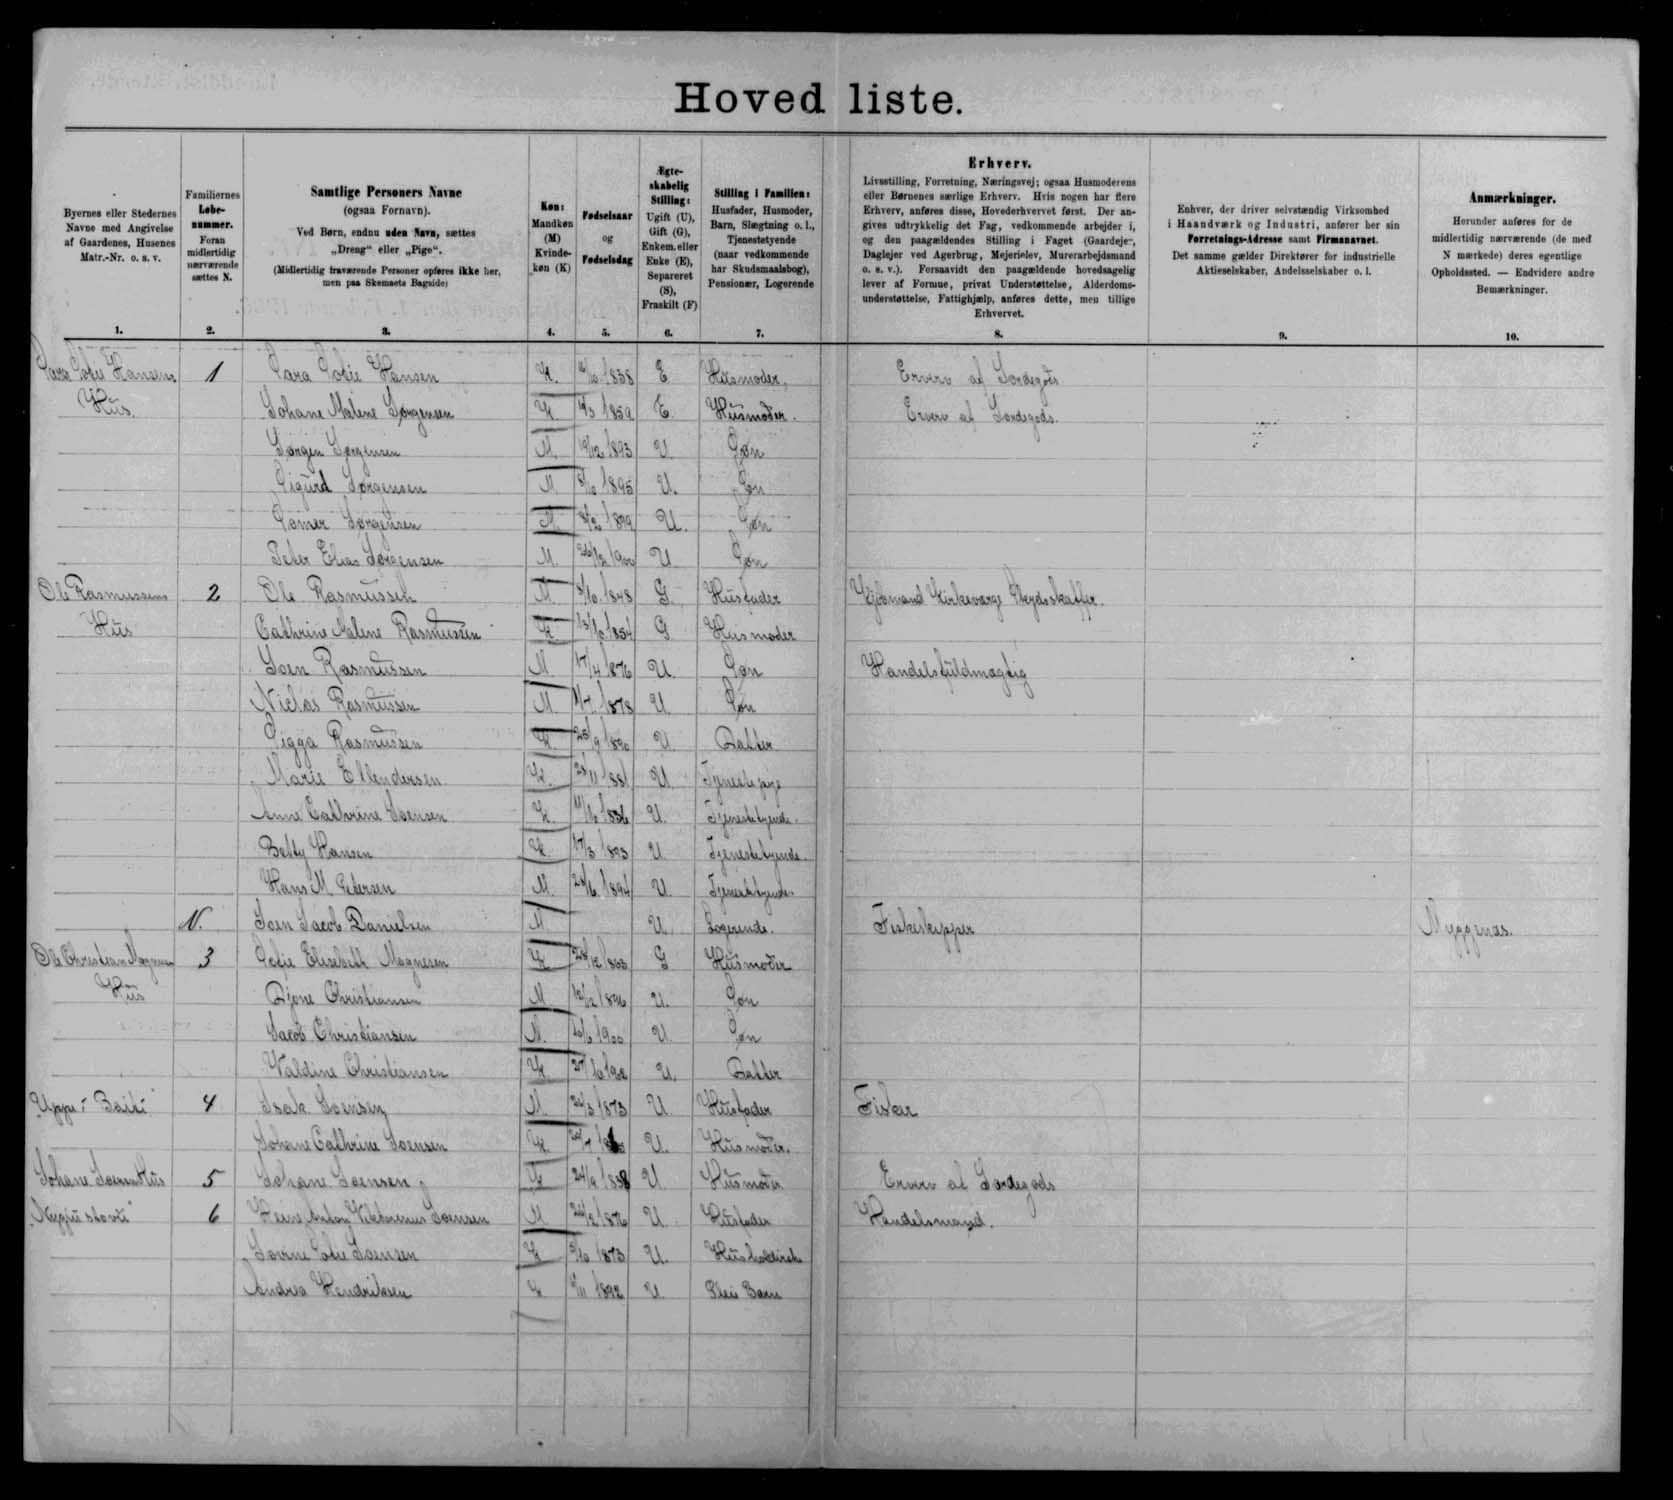 Hoved liste.
Byernes eller Stedernes
Navne med Angivelse
af Gaardenes, Husenes
Matr.-Nr. o. s. v.
1.
Familiernes
Løbe-
nummer.
Foran
midlertidig
nærværende
sættes N.
2.
Samtlige Personers Navne
(ogsaa Fornavn).
Ved Børn, endnu uden Navn, sættes
„Dreng“ eller „Pige“.
(Midlertidig fraværende Personer opføres ikke her,
men paa Skemaets Bagside)
3.
Køn:
Mandkøn
(M)
Kvinde-
køn (K)
4.
Fødselsaar
og
Fødselsdag
5.
Ægte-
skabelig
Stilling:
Ugift (U),
Gift (G),
Enkem. eller
Enke (E),
Separeret
(S),
Fraskilt (F)
6.
Stilling i Familien:
Husfader, Husmoder,
Barn, Slægtning o. l.,
Tjenestetyende
(naar vedkommende
har Skudsmaalsbog),
Pensionær, Logerende
7.
Erhverv.
Livsstilling, Forretning, Næringsvej; ogsaa Husmoderens
eller Børnenes særlige Erhverv. Hvis nogen har flere
Erhverv, anføres disse, Hovederhvervet først. Der an-
gives udtrykkelig det Fag, vedkommende arbejder i,
og den paagældendes Stilling i Faget (Gaardejer,
Daglejer ved Agerbrug, Mejerielev, Murerarbejdsmand
o. s. v.). Forsaavidt den paagældende hovedsagelig
lever af Formue, privat Understøttelse, Alderdoms-
understøttelse, Fattighjælp, anføres dette, men tillige
Erhvervet.
8.
Enhver, der driver selvstændig Virksomhed
i Haandværk og Industri, anfører her sin
Forretnings-Adresse samt Firmanavnet.
Det samme gælder Direktører for industrielle
Aktieselskaber, Andelsselskaber o. l.
9.
Anmærkninger.
Herunder anføres for de
midlertidig nærværende (de med
N mærkede) deres egentlige
Opholdssted. — Endvidere andre
Bemærkninger.
10.
Sara Sofie Hansens 1 Sara Sofie Hansen K. 1838 E Husmoder. Erverv af Jordegods
Hus. Johane Malene Jørgensen K 1859 E. Husmoder. Erverv af Jordegods.
Jørgen Jørgensen M. 19/12 1893 U. Søn
Sigurd Jørgensen M 1895 U. Søn
Jørgensen M. 1899 U. Søn
Peter Elias Jørgensen M. U Søn
Ole Rasmussens 2 Ole Rasmussen M. 1848 G. Husfader Kirkeværge Skydsskaffer.
Hus Cathrine Malene Rasmussen K 1854 G Husmoder
Joen Rasmussen M 17/4 1876 U. Søn Handelsfuldmægtig
Niclas Rasmussen M 1878 U. Søn
Sigga Rasmussen K 25/9 1890 U. Datter
Marie Ellendersen K. 1881 U Tjenestepige
Anne Cathrine Joensen K. U. Tjenestetyende.
Betty Hansen K. 17/3 1893 U Tjenestetyende.
Hans M. Petersen M. 1894 U. Tjenestetyende.
N. Joen Jacob Danielsen M U Logerende. Fiskeskipper Myggenæs.
Ole Christian 3 Sofie Elisebeth Magnesen K G Husmoder
Hus Djone Christiansen M. 1896 U. Søn
Jacob Christiansen M. 1900 U. Søn
Valdine Christiansen K U. Datter
4 Isak Joensen M. 1873 U. Husfader Fisker
Johane Cathrine Joensen K. U. Husmoder.
Johane Joensens Hus 5 Johane Joensen K 1838 U. Husmoder Erverv af Jordegods
6 Joensen M. 1876 U. Husfader Handelsmand.
Sofie Joensen K 1873 U.
Andrea Hendriksen K 1892 U Pleie Barn